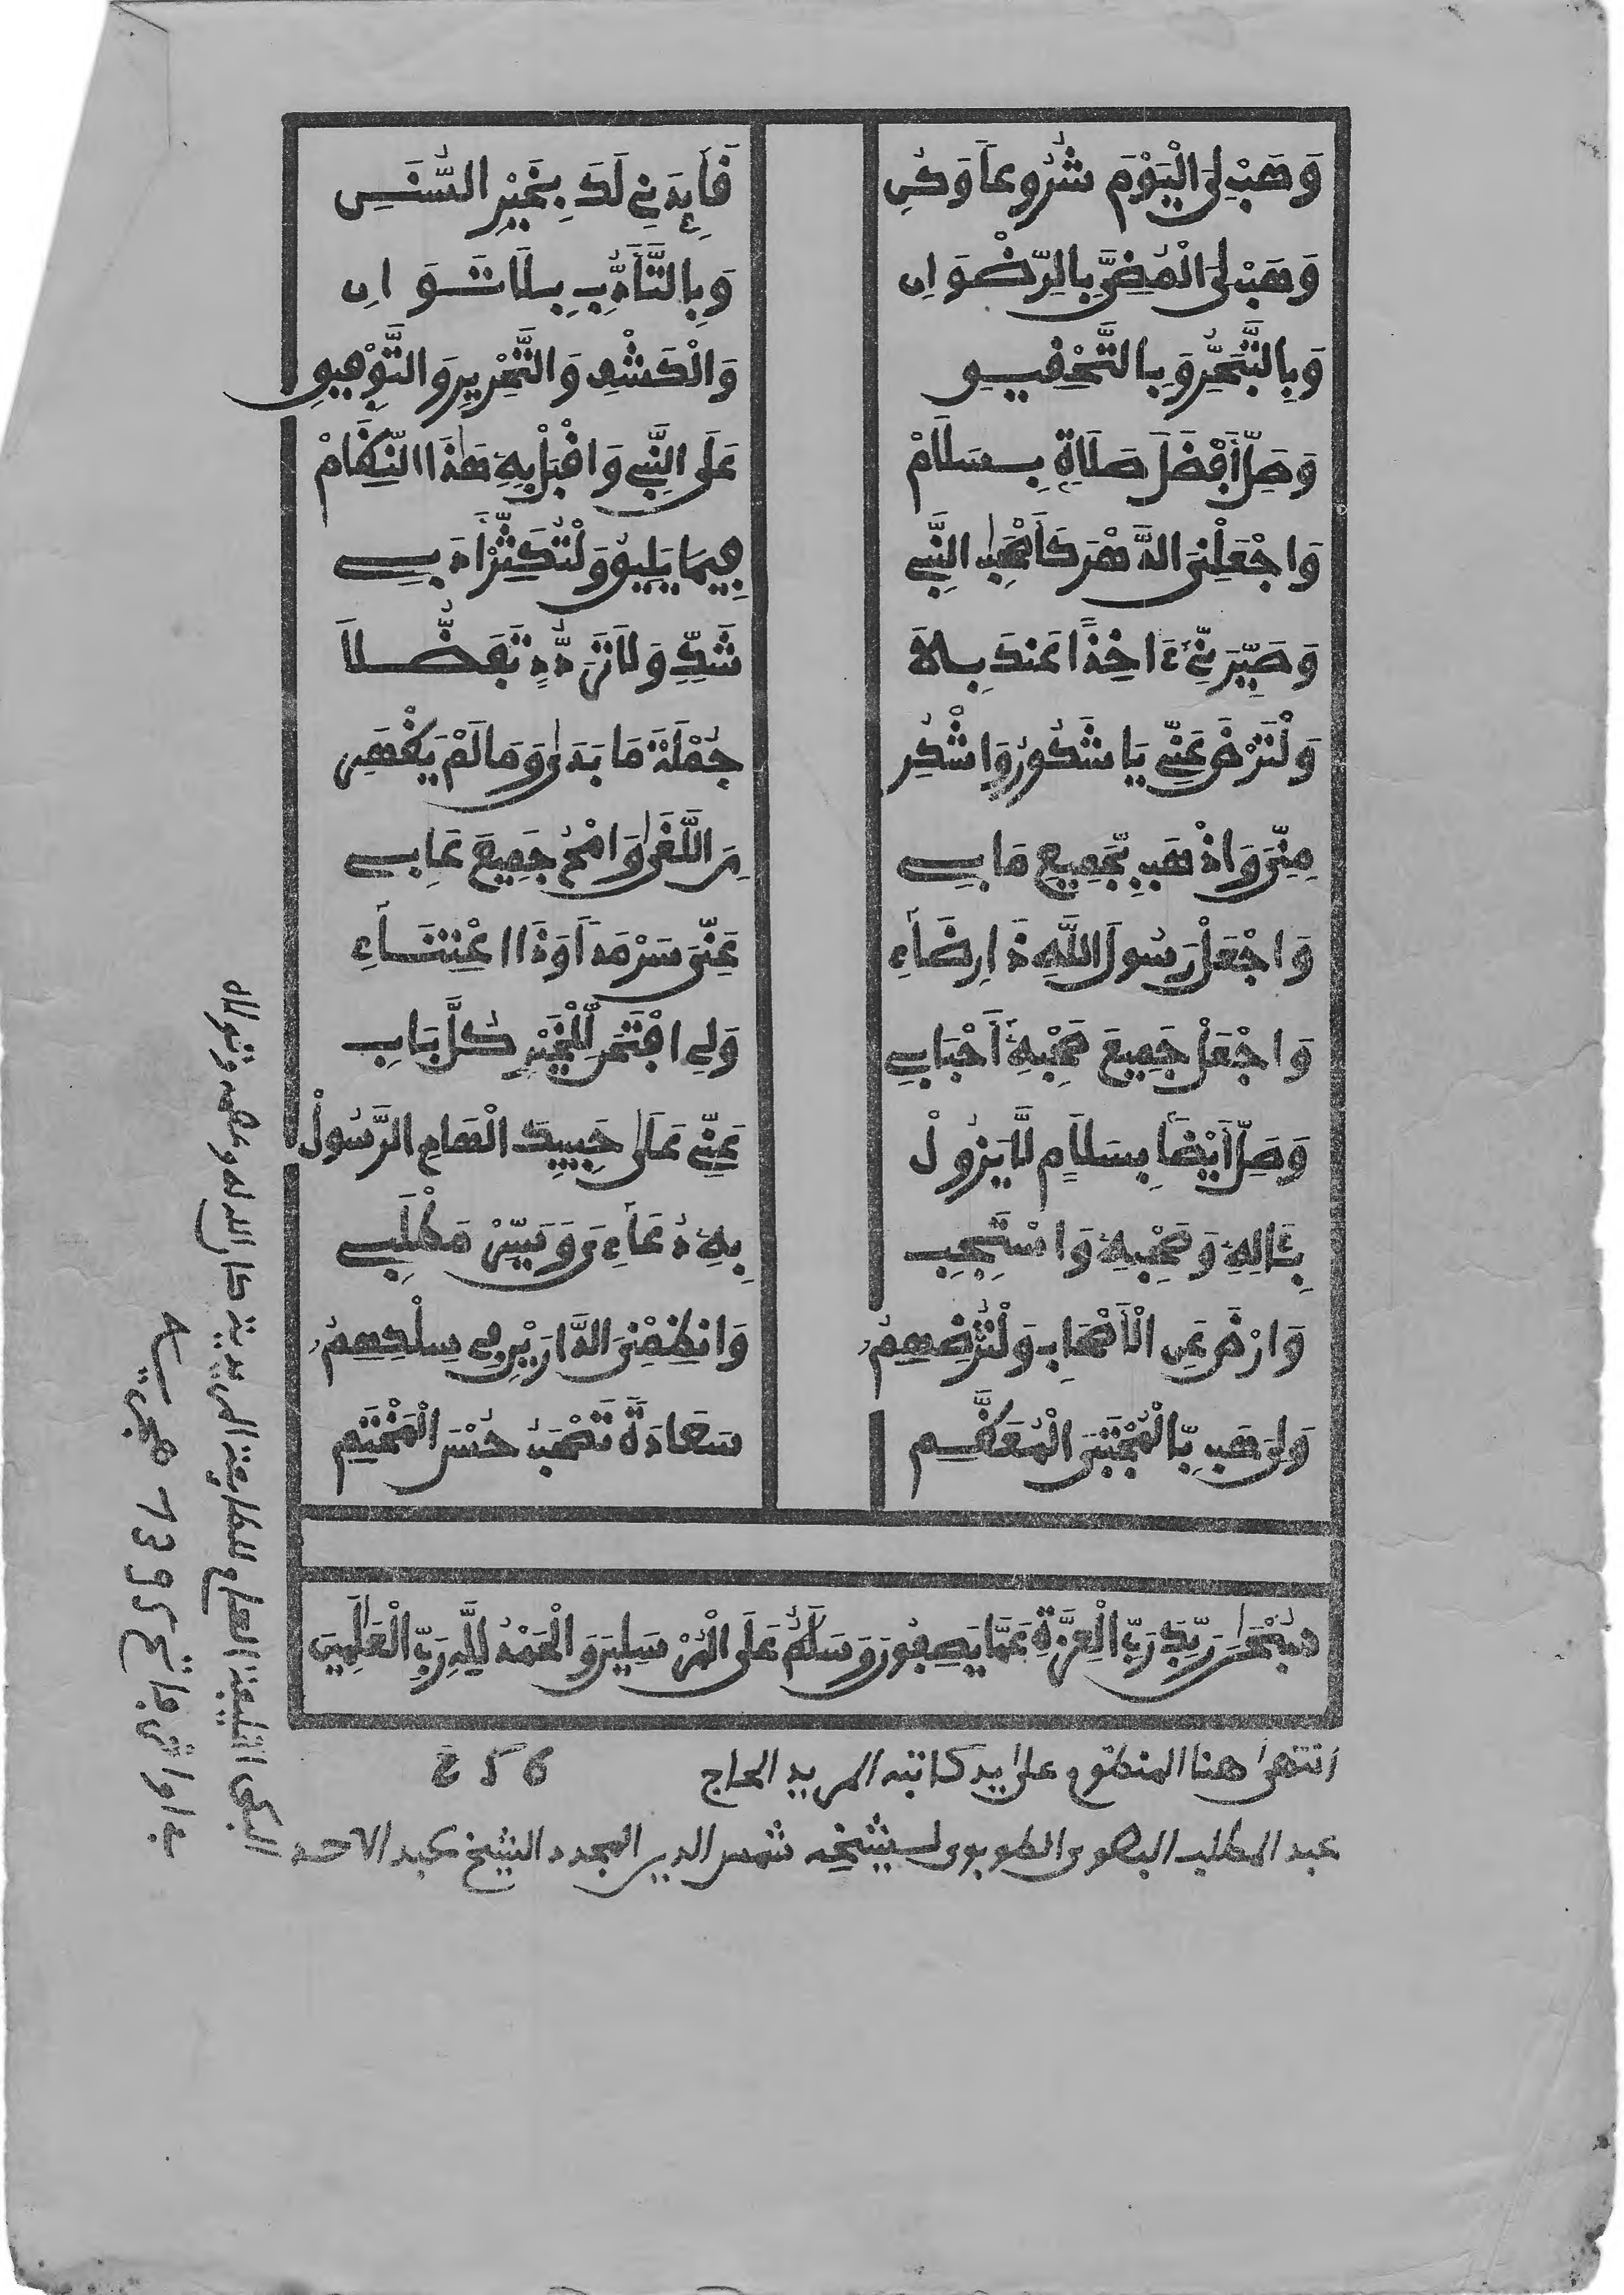 وَهَبْ لِىَ الْيَوْمَ شُرُوعاً وَكُنِ فَائِدَنِي لَكَ بِخَيْرِ السُّنَنِ
وَهَبْ لِىَ الْمُضِىَّ بِالرِّضْوَانِ وَبِالتَّأَدُّبِ بِلَا تَوَانِ
وَبِالتَّبَحُّرِ وَبِالتَّحْقِيقِ وَالْكَشْفِ وَالتَّحْرِيرِ وَالتَّوْفِيقِ
وَصَلِّ أَفْضَلَ صَلَاةٍ بِسَلَامْ عَلَى النَّبِي وَاقْبَلْ بِهِ هَٰذَا النِّظَامْ
وَاجْعَلْنِىَ الدَّهْرَ كَأَصْحَٰبِ النَّبِي فِيمَا يَلِيقُ وَلْتُكَثِّرْ أَدَبِي
وَصَيِّرَنِّي ءَاخِذاً عَنكَ بِلَا شَكٍّ وَلَا تَرَدُّدٍ تَفَضُّلَا
وَلْتَرْضَ عَنِّي يَا شَكُورُ وَاشْكُرِ جُمْلَةَ مَا بَدَىٰ وَمَا لَمْ يَظْهَرِ
مِنِّى وَاذْهَبْ بِجَمِيعِ مَا بِي مِنَ اللَّغَىٰ وَامْحُ جَمِيعَ عَابِي
وَاجْعَلْ رَسُولَ اللَّهِ ذَا رِضَاءِ عَنِّىَ سَرْمَداً وَذَا اعْتِنَاءِ
وَاجْعَلْ جَمِيعَ صَحْبِهِ أَحْبَابِي وَلِي افْتَحَن لِّلْخَيْرِ كُلَّ بَابِ
وَصَلِّ أَيْضاً بِسَلَامٍ لَّا يَزُولْ عَنِّي عَلَىٰ حَبِيبِكَ الْهَادِ الرَّسُولْ
بِـَٔالِهِ وَصَحْبِهِ وَاسْتَجِبِ بِهِ دُعَاءِىَ وَيَسِّرْ مَطْلَبِي
وَارْضَ عَنِ الْأَصْحَابِ وَلْتُرْضِهِمُ وَانظِمْنِىَ الدَّارَيْنِ فِي سِلْكِهِمُ
وَلِىَ هَب بِّالْمُجْتَبَى الْمُعَظَّمِ سَعَادَةً تَصْحَبُ حُسْنَ الْمَخْتَمِ
سُبْحَٰنَ رَبِّكَ رَبِّ الْعِزَّةِ عَمَّا يَصِفُونَ وَسَلَٰمٌ عَلَى الْمُرْسَلِينَ وَالْحَمْدُ لِلَّهِ رَبِّ الْعَٰلَمِينَ
انتهىٰ هنا المنظوم علىٰ يد كاتبه المريد الحاج
عبد المطلب البهوى الطوبوى لشيخه شمس الدين المجدد الشيخ عبد الاحد
البكى